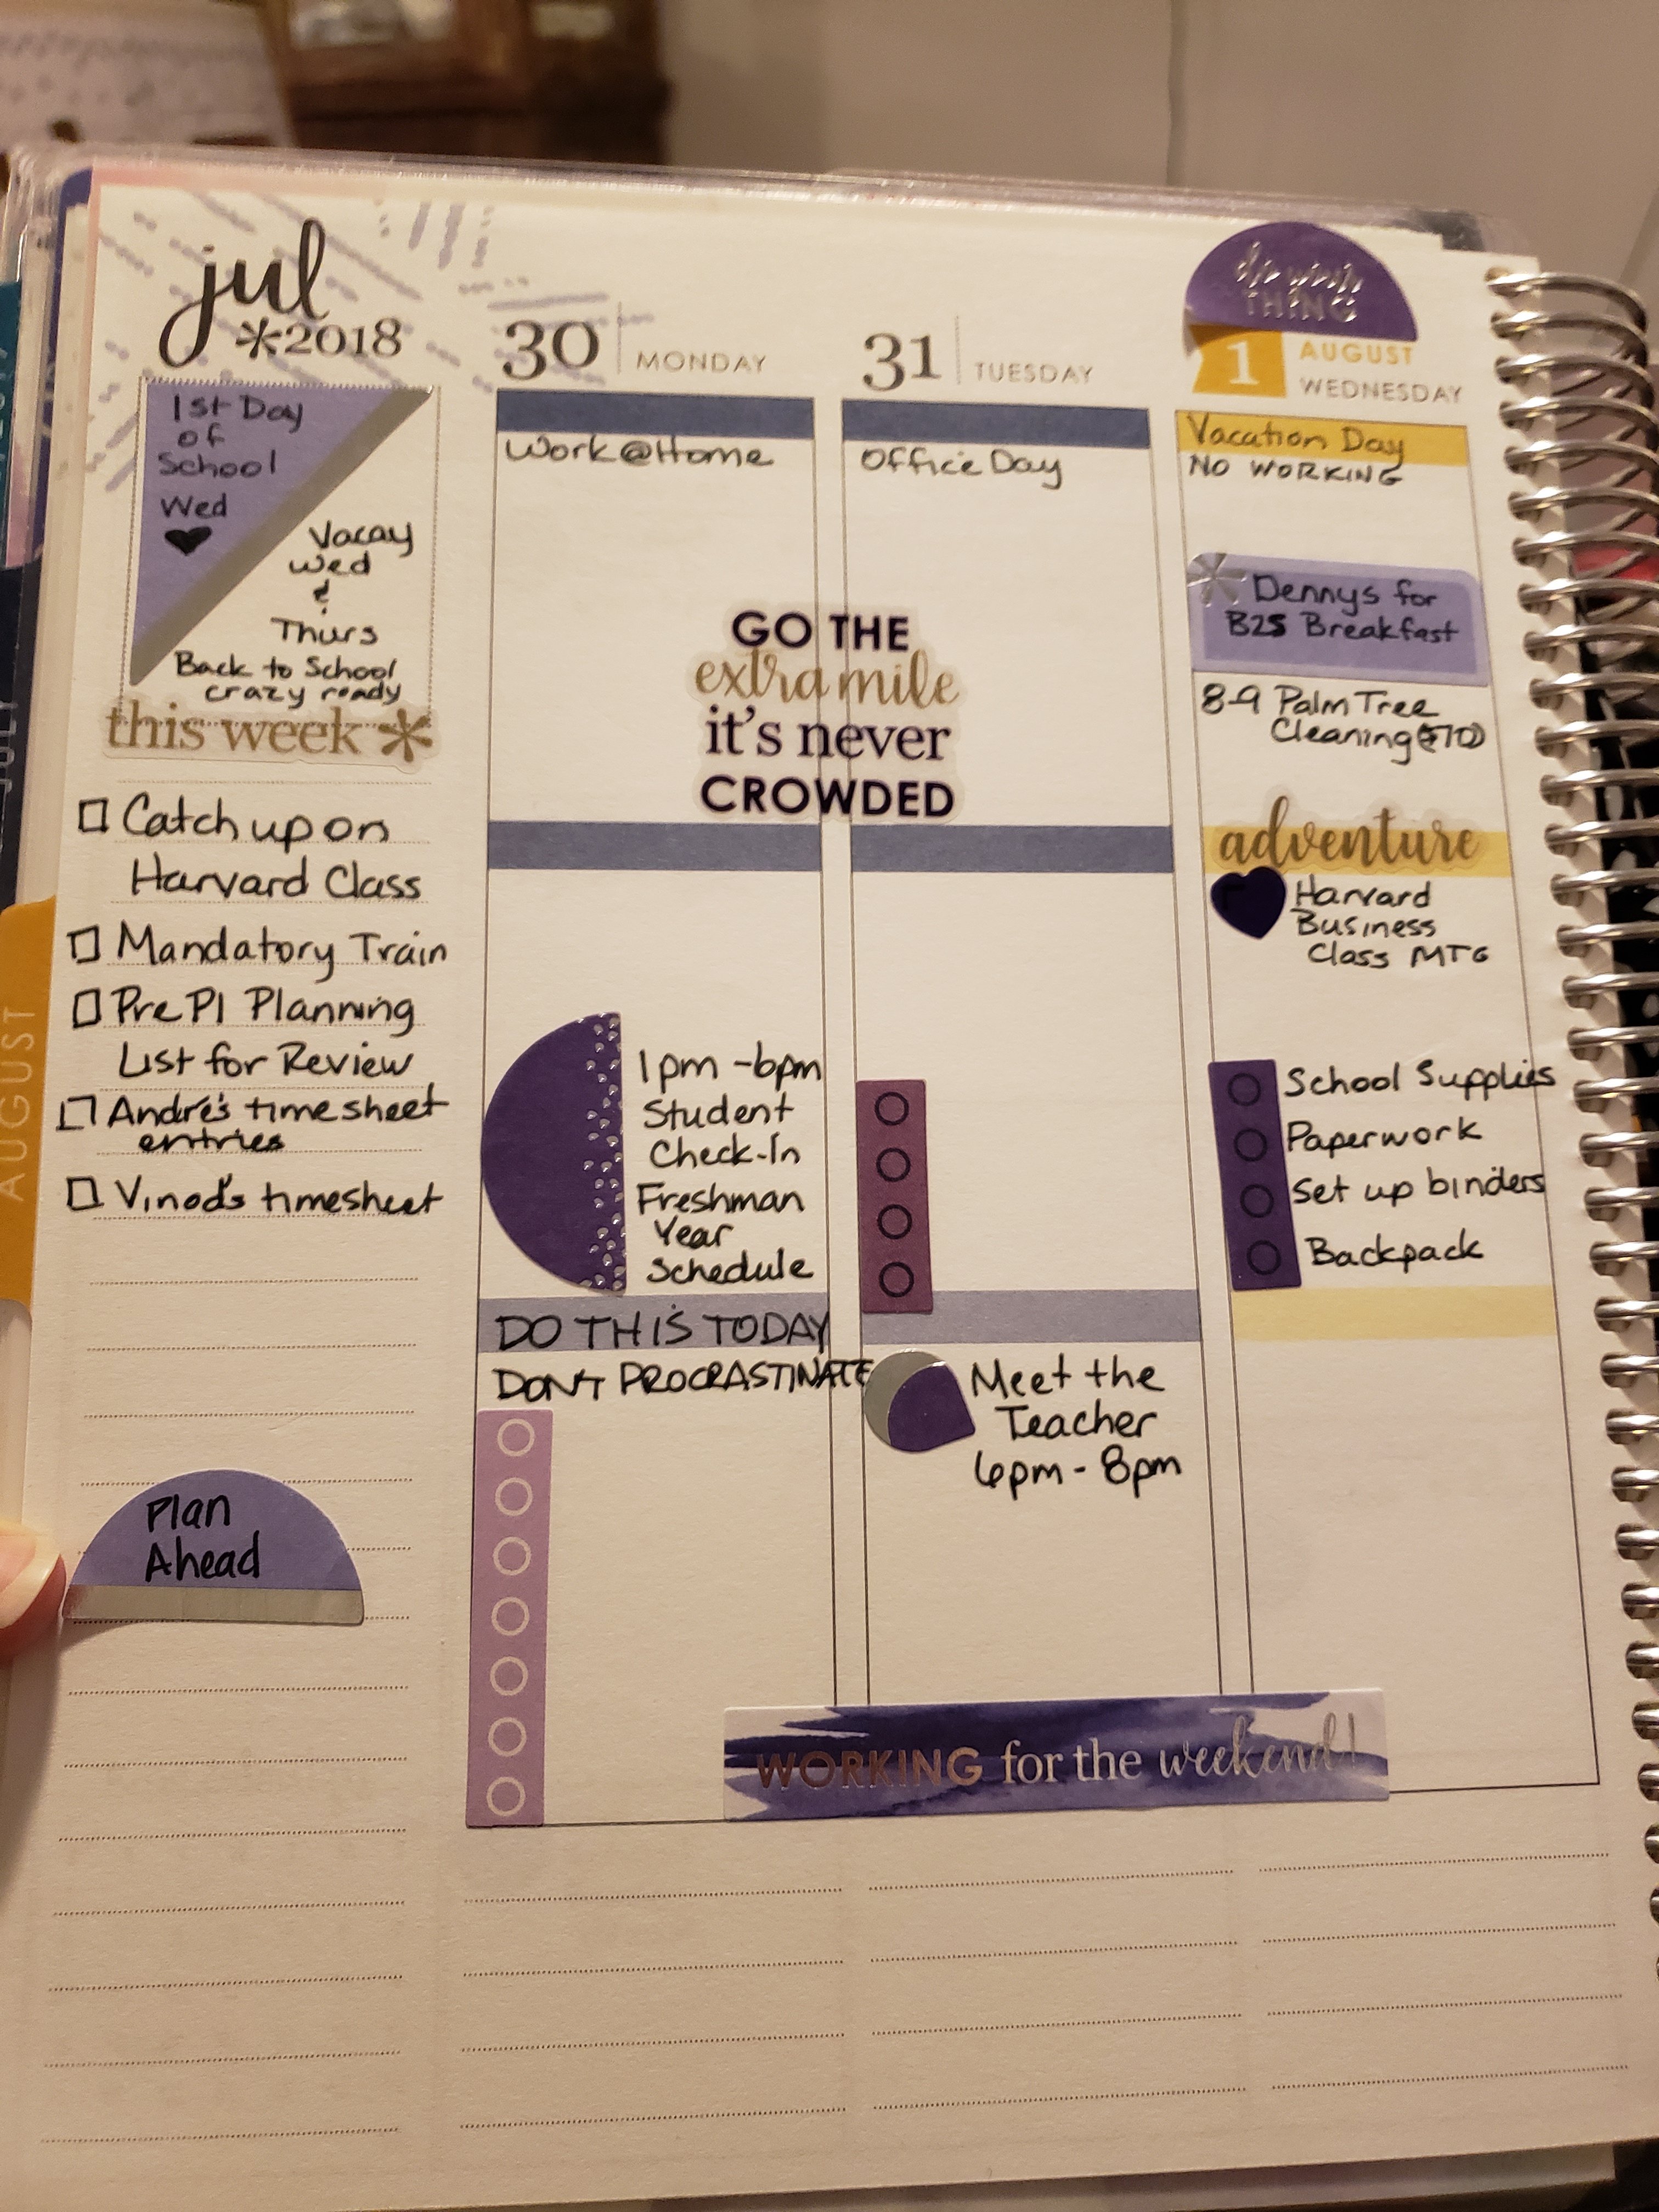 jul
*2018
1st Day
of
School
Wed
Vacay
Wed
&
Thurs
Back to School
crazy ready
this week *
Catch up on
Harvard Class
Mandatory Train
Pre PI Planning
List for Review
Andre's timesheet
entries
Vinod's timesheet
Plan
Ahead
30 MONDAY
Work@Home
GO THE
extra mile
it's never
CROWDED
1pm-6pm
Student
Check-In
Freshman
Year
Schedule
DO THIS TODAY
DON'T PROCRASTINATE
31 TUESDAY
Office Day
Meet the
Teacher
6pm - 8pm
do your
THING
1 AUGUST
WEDNESDAY
Vacation Day
NO WORKING
Dennys for
B2S Breakfast
8-9 Palm Tree
Cleaning
adventure
Harvard
Business
Class MTG
School Supplies
Paperwork
Set up binders
Backpack
WORKING for the weekend!
JULY
AUGUST